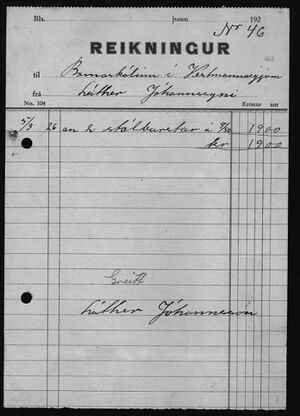 Bls. Þann 192
No 46
REIKNINGUR
til Barnaskólinn í Vestmannaeyjum
frá Lúther Jóhannessyni
No. 104 Krónur aur
5/3 26 an 2 stálburstar á 9/50 19 00
kr 19 00
Greitt
Lúther Jóhannesson